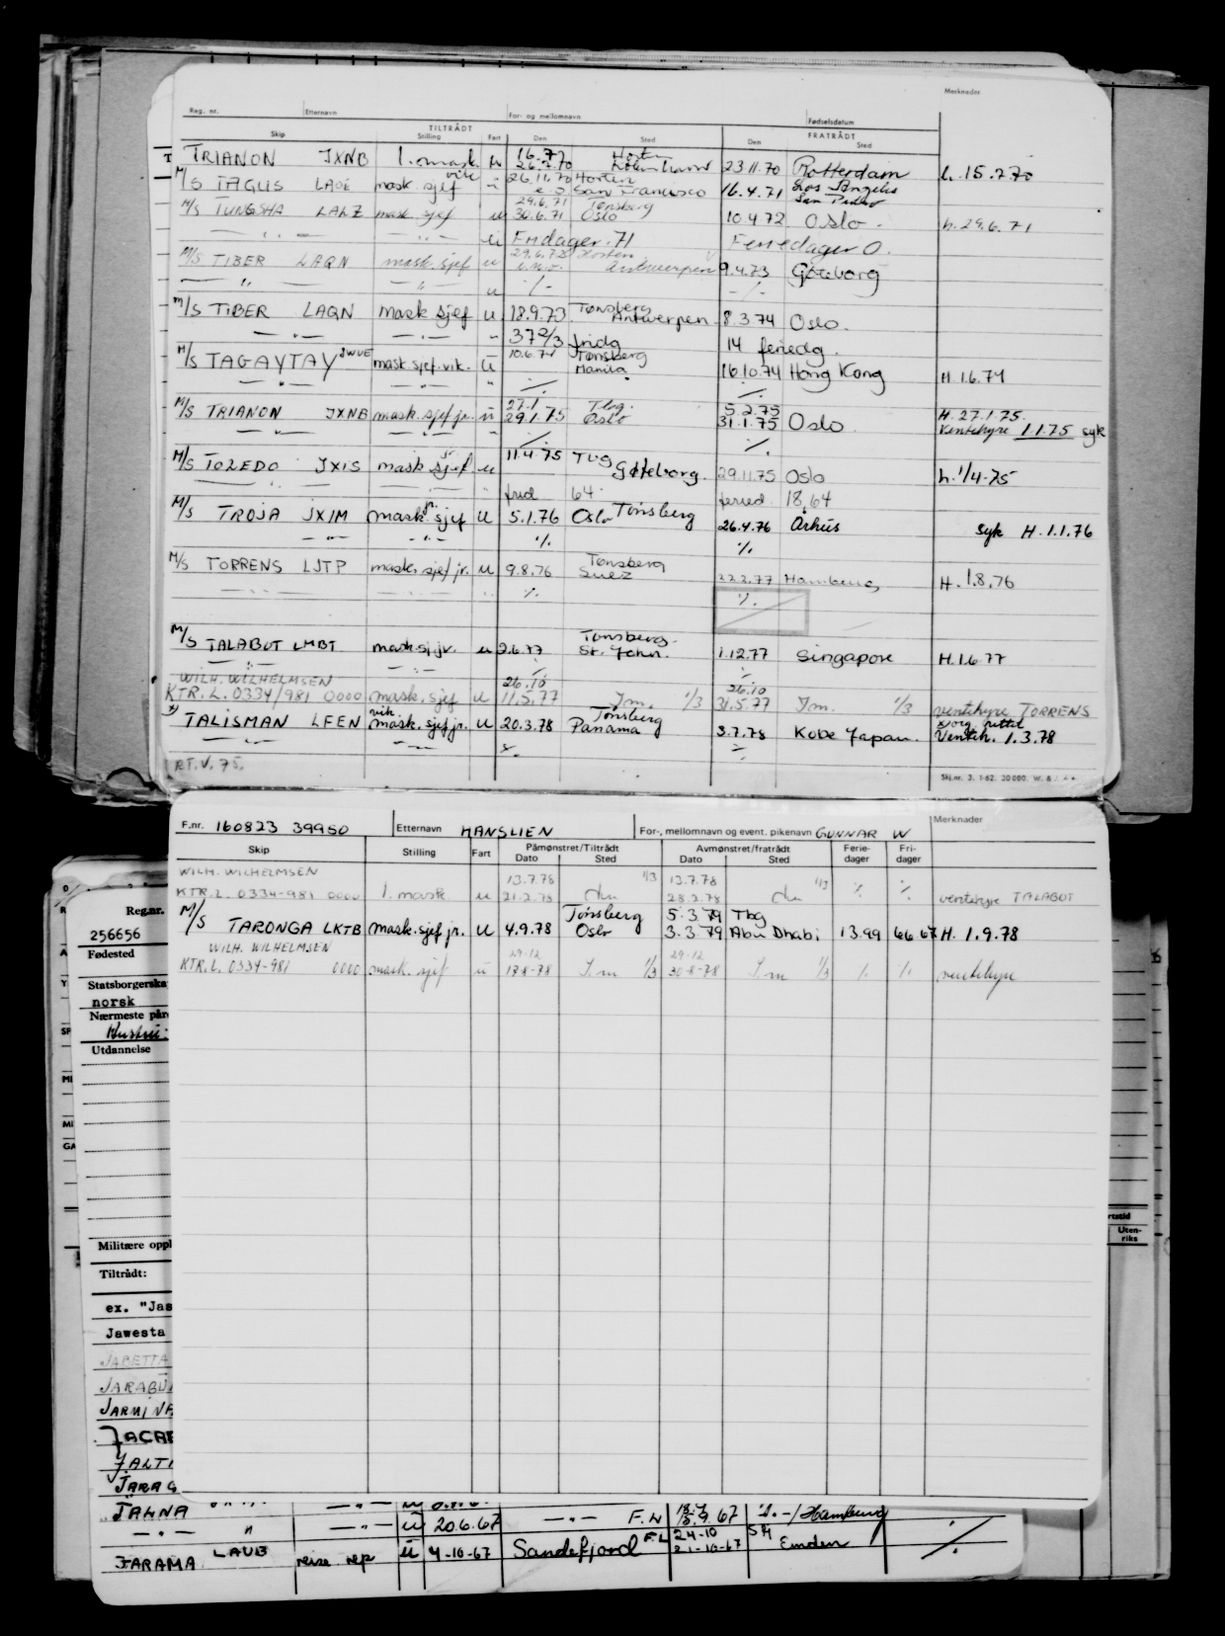 Merknader
Reg. nr. Etternavn For- og mellomnavn Fødselsdatum
TILTRÅDT FRATRÅDT
Skip Stilling Fart Den Sted Den Sted
16.7 Horten
TRIANON JXNB 1. mask. u 26.7.70 København 23.11.70 Rotterdam h. 15.7.70
vik 26.11.70 Horten Los Angeles
M/S TAGUS LAOE mask. sjef u San Francisco 16.4.71 San Pedro
29.6.71 Tønsberg
M/S TUNGSHA LALZ mask. sjef u 30.6.71 Oslo 10.4.72 Oslo. h. 29.6.71
— " — — " — u Fridager. 71 Feriedager 0.
29.6.72 Horten
M/S TIBER LAQN mask. sjef u Antwerpen 9.4.73 Gøteborg
— " — — " — u -/- -/-
Tønsberg
M/S TIBER LAQN mask sjef u 18.9.73 Antwerpen 8.3.74 Oslo.
— " — — " — " 37 2/3 fridg 14 feriedg.
10.6.74 Tønsberg
M/S TAGAYTAY JWUE mask sjef. vik. u Manila 16.10.74 Hong Kong H. 1.6.74
— " — — " — " ./. ./.
27.1 Tbg. 5.2.75 H. 27.1.75.
M/S TRIANON JXNB mask. sjef jr. u 29.1.75 Oslo 31.1.75 Oslo Ventehyre 1.1.75 syk
— " — — " — " ./. ./.
jr. 11.4.75 Tbg
M/S TOLEDO JXIS mask sjef u Gøteborg. 29.11.75 Oslo h. 1/4-75
— " — — " — " frid 64. feried. 18,64
M/S TROJA JXIM mask. jr. sjef u 5.1.76 Oslo Tønsberg 26.4.76 Århus syk H. 1.1.76
— " — — " — ./. ./.
Tønsberg
M/S TORRENS LJTP mask. sjef jr. u 9.8.76 Suez 22.2.77 Hamburg H. 1.8.76
— " — — " — " ./. ./.
Tønsberg.
M/S TALABOT LMBT mask. sj. jr. u 2.6.77 St. John. 1.12.77 Singapore H. 1.6.77
— " — — " — ./. ./.
WILH. WILHELMSEN 26.10 26.10
KTR. L. 0334/981 0000 mask. sjef u 11.5.77 I m. 1/3 31.5.77 I m. 1/3 ventehyre TORRENS
vik Tønsberg
TALISMAN LFEN mask. sjef jr. u 20.3.78 Panama 3.7.78 Kobe Japan. Venteh. 1.3.78
— " — — " — ./. ./.
RT. V. 75.
Skj.nr. 3. 1-62. 30 000. W. &
F.nr. 160823 39950 Etternavn HANSLIEN For-, mellomnavn og event. pikenavn GUNNAR W Merknader
Skip Stilling Fart Påmønstret/Tiltrådt Avmønstret/fratrådt Ferie-dager Fri-dager
Dato Sted Dato Sted
WILH. WILHELMSEN 13.7.78 1/3 13.7.78 1/3
KTR. L. 0334-981 0000 1. mask. u 21.2.78 du 28.2.78 du ./. ./. ventehyre TALABOT
Tønsberg 5.3.79 Tbg
M/S TARONGA LKTB mask. sjef jr. u 4.9.78 Oslo 3.3.79 Abu Dhabi 13.99 66.67 H. 1.9.78
WILH. WILHELMSEN 29.12 29.12
KTR. L. 0334-981 0000 mask. sjef u 17.8-78 I. m 1/3 30-8-78 I. m 1/3 ./. ./. ventehyre
Reg.nr.
256656
Fødested
Statsborgerska
norsk
Nærmeste pårø
Hustru:
Utdannelse
Militære oppl
Tiltrådt:
ex. "Jas
Jawesta
JABETTA
JARABU
JARMINA
JACAR
JALTI
JARAG
JALNA
— " — " — " — u 20.6.67 — " — F.W 67 Hamburg
JARAMA LAUB reise rep u 4-10-67 Sandefjord F.L 24-10 21-10-67 Emden ./.
rtstid
Uten-
riks